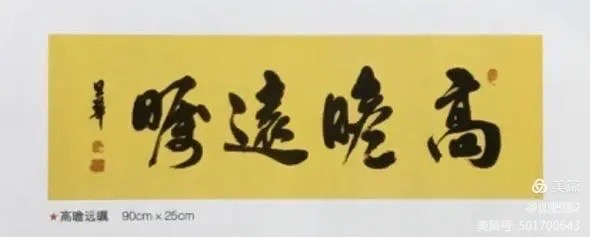 高瞻遠矚
★高瞻远瞩 90cm×25cm
美篇
美篇号: 501700643